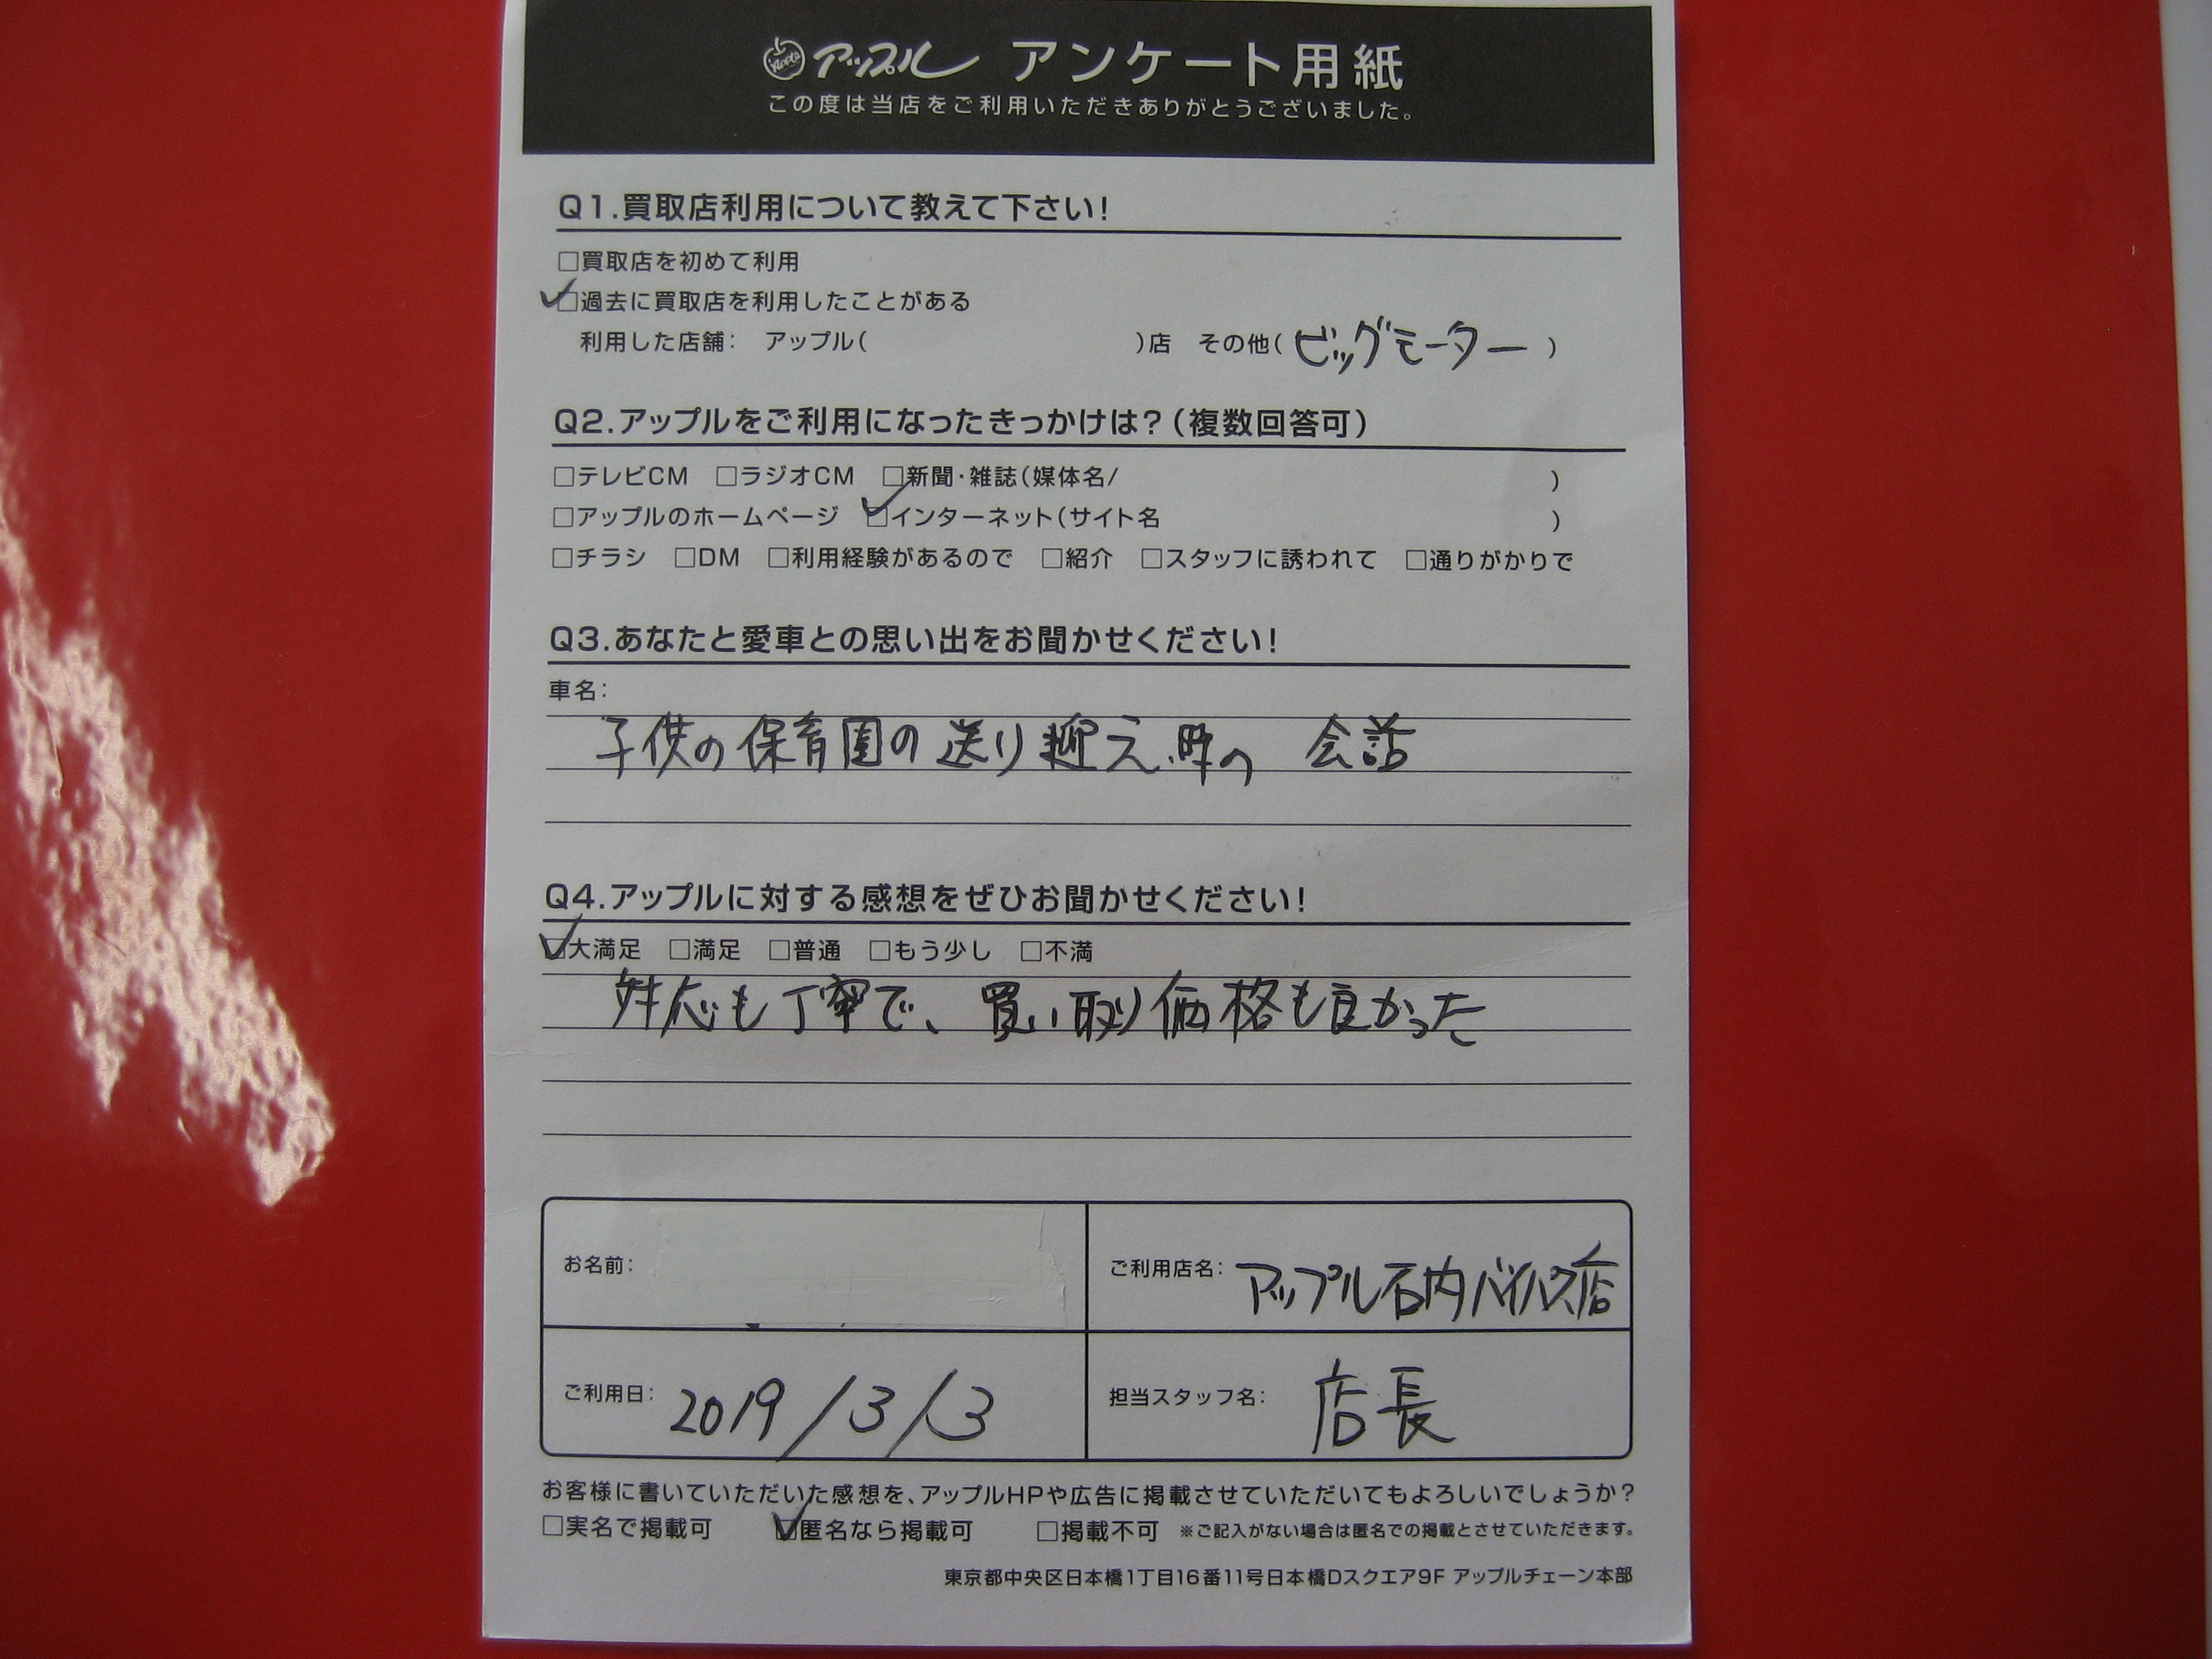 Apple アップル アンケート用紙
この度は当店をご利用いただきありがとうございました。
Q1.買取店利用について教えて下さい!
□買取店を初めて利用
☑過去に買取店を利用したことがある
利用した店舗: アップル( )店 その他(ビッグモーター)
Q2.アップルをご利用になったきっかけは?(複数回答可)
□テレビCM □ラジオCM □新聞・雑誌(媒体名/ )
□アップルのホームページ ☑インターネット(サイト名 )
□チラシ □DM □利用経験があるので □紹介 □スタッフに誘われて □通りがかりで
Q3.あなたと愛車との思い出をお聞かせください!
車名:
子供の保育園の送り迎え時の 会話
Q4.アップルに対する感想をぜひお聞かせください!
☑大満足 □満足 □普通 □もう少し □不満
対応も丁寧で、買い取り価格も良かった
お名前:
ご利用店名: アップル石内バイパス店
ご利用日: 2019/3/3
担当スタッフ名: 店長
お客様に書いていただいた感想を、アップルHPや広告に掲載させていただいてもよろしいでしょうか?
□実名で掲載可 ☑匿名なら掲載可 □掲載不可 ※ご記入がない場合は匿名での掲載とさせていただきます。
東京都中央区日本橋1丁目16番11号日本橋Dスクエア9F アップルチェーン本部